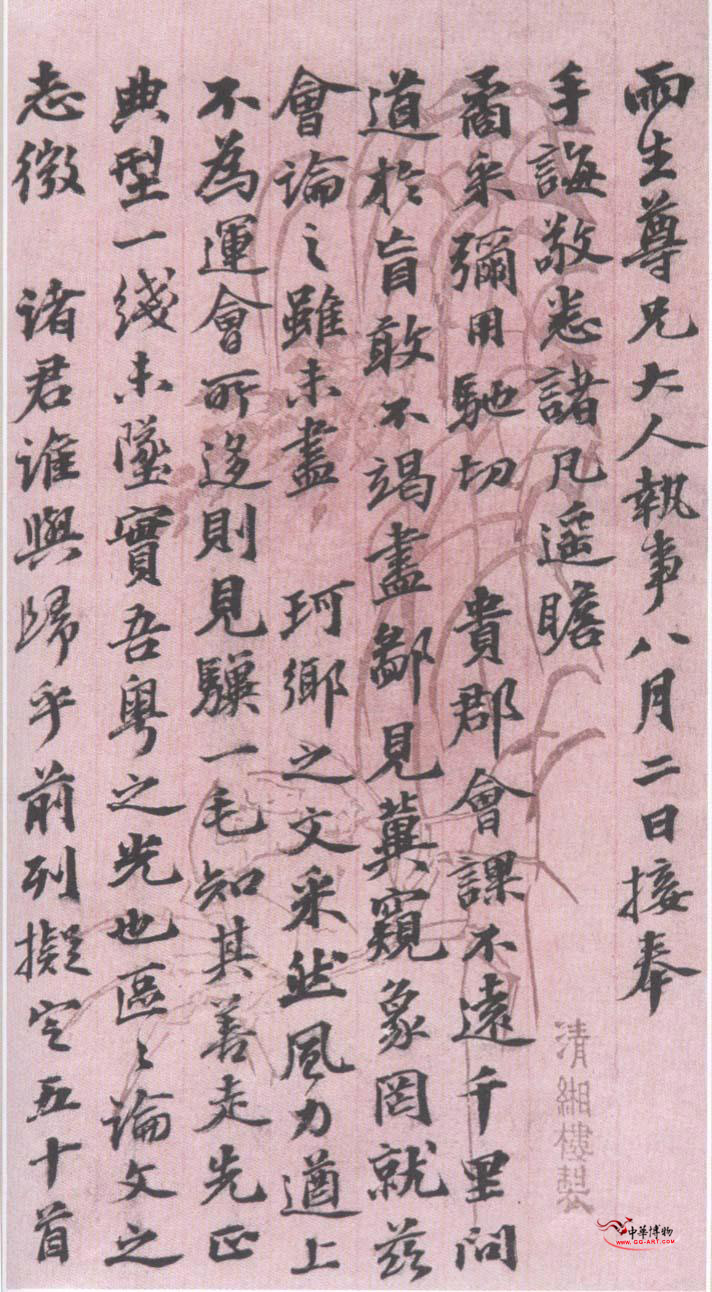 雨生尊兄大人執事八月二日接奉
手誨敬悉諸凡遥瞻
矞采彌用馳切 貴郡會課不遠千里問
道於盲敢不竭盡鄙見冀窺象罔就茲
會論之雖未盡 珂鄉之文采然風力遒上
不為運會所迻則見驥一毛知其善走先正
典型一綫未墜實吾粵之光也區〻論文之
志微 诸君谁與歸乎前列擬定五十首
清緗樓製
中華博物
www.gg-art.com